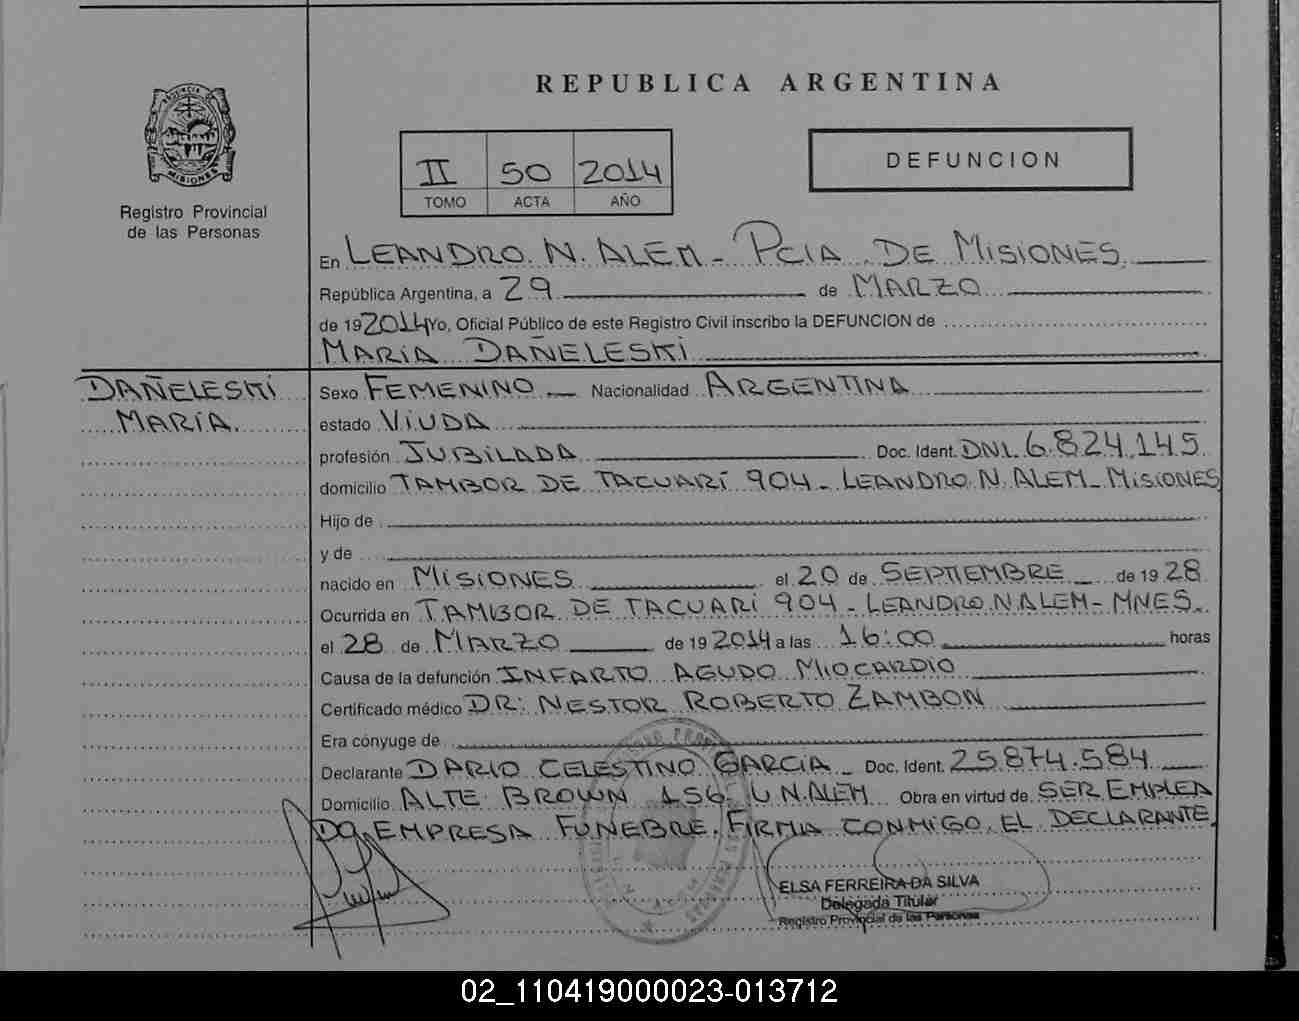 REPUBLICA ARGENTINA
PROVINCIA
MISIONES
Registro Provincial
de las Personas
II 50 2014
TOMO ACTA AÑO
DEFUNCION
En LEANDRO N. ALEM - PCIA. DE MISIONES
República Argentina, a 29 de MARZO
de 19 2014 Yo, Oficial Público de este Registro Civil inscribo la DEFUNCION de
MARÍA DAÑELESKI
DAÑELESKI
MARÍA.
Sexo FEMENINO Nacionalidad ARGENTINA
estado VIUDA
profesión JUBILADA Doc. Ident. DNI. 6.824.145
domicilio TAMBOR DE TACUARÍ 904 - LEANDRO N. ALEM - MISIONES
Hijo de
y de
nacido en MISIONES el 20 de SEPTIEMBRE de 19 28
Ocurrida en TAMBOR DE TACUARÍ 904 - LEANDRO N ALEM - MNES.
el 28 de MARZO de 19 2014 a las 16:00 horas
Causa de la defunción INFARTO AGUDO MIOCARDIO
Certificado médico DR: NESTOR ROBERTO ZAMBON
Era cónyuge de
Declarante DARIO CELESTINO GARCIA - Doc. Ident. 25.874.584
Domicilio ALTE BROWN 156 L N. ALEM Obra en virtud de SER EMPLEA
DO EMPRESA FUNEBRE. FIRMA CONMIGO EL DECLARANTE.
ELSA FERREIRA DA SILVA
Delegada Titular
Registro Provincial de las Personas
02_110419000023-013712